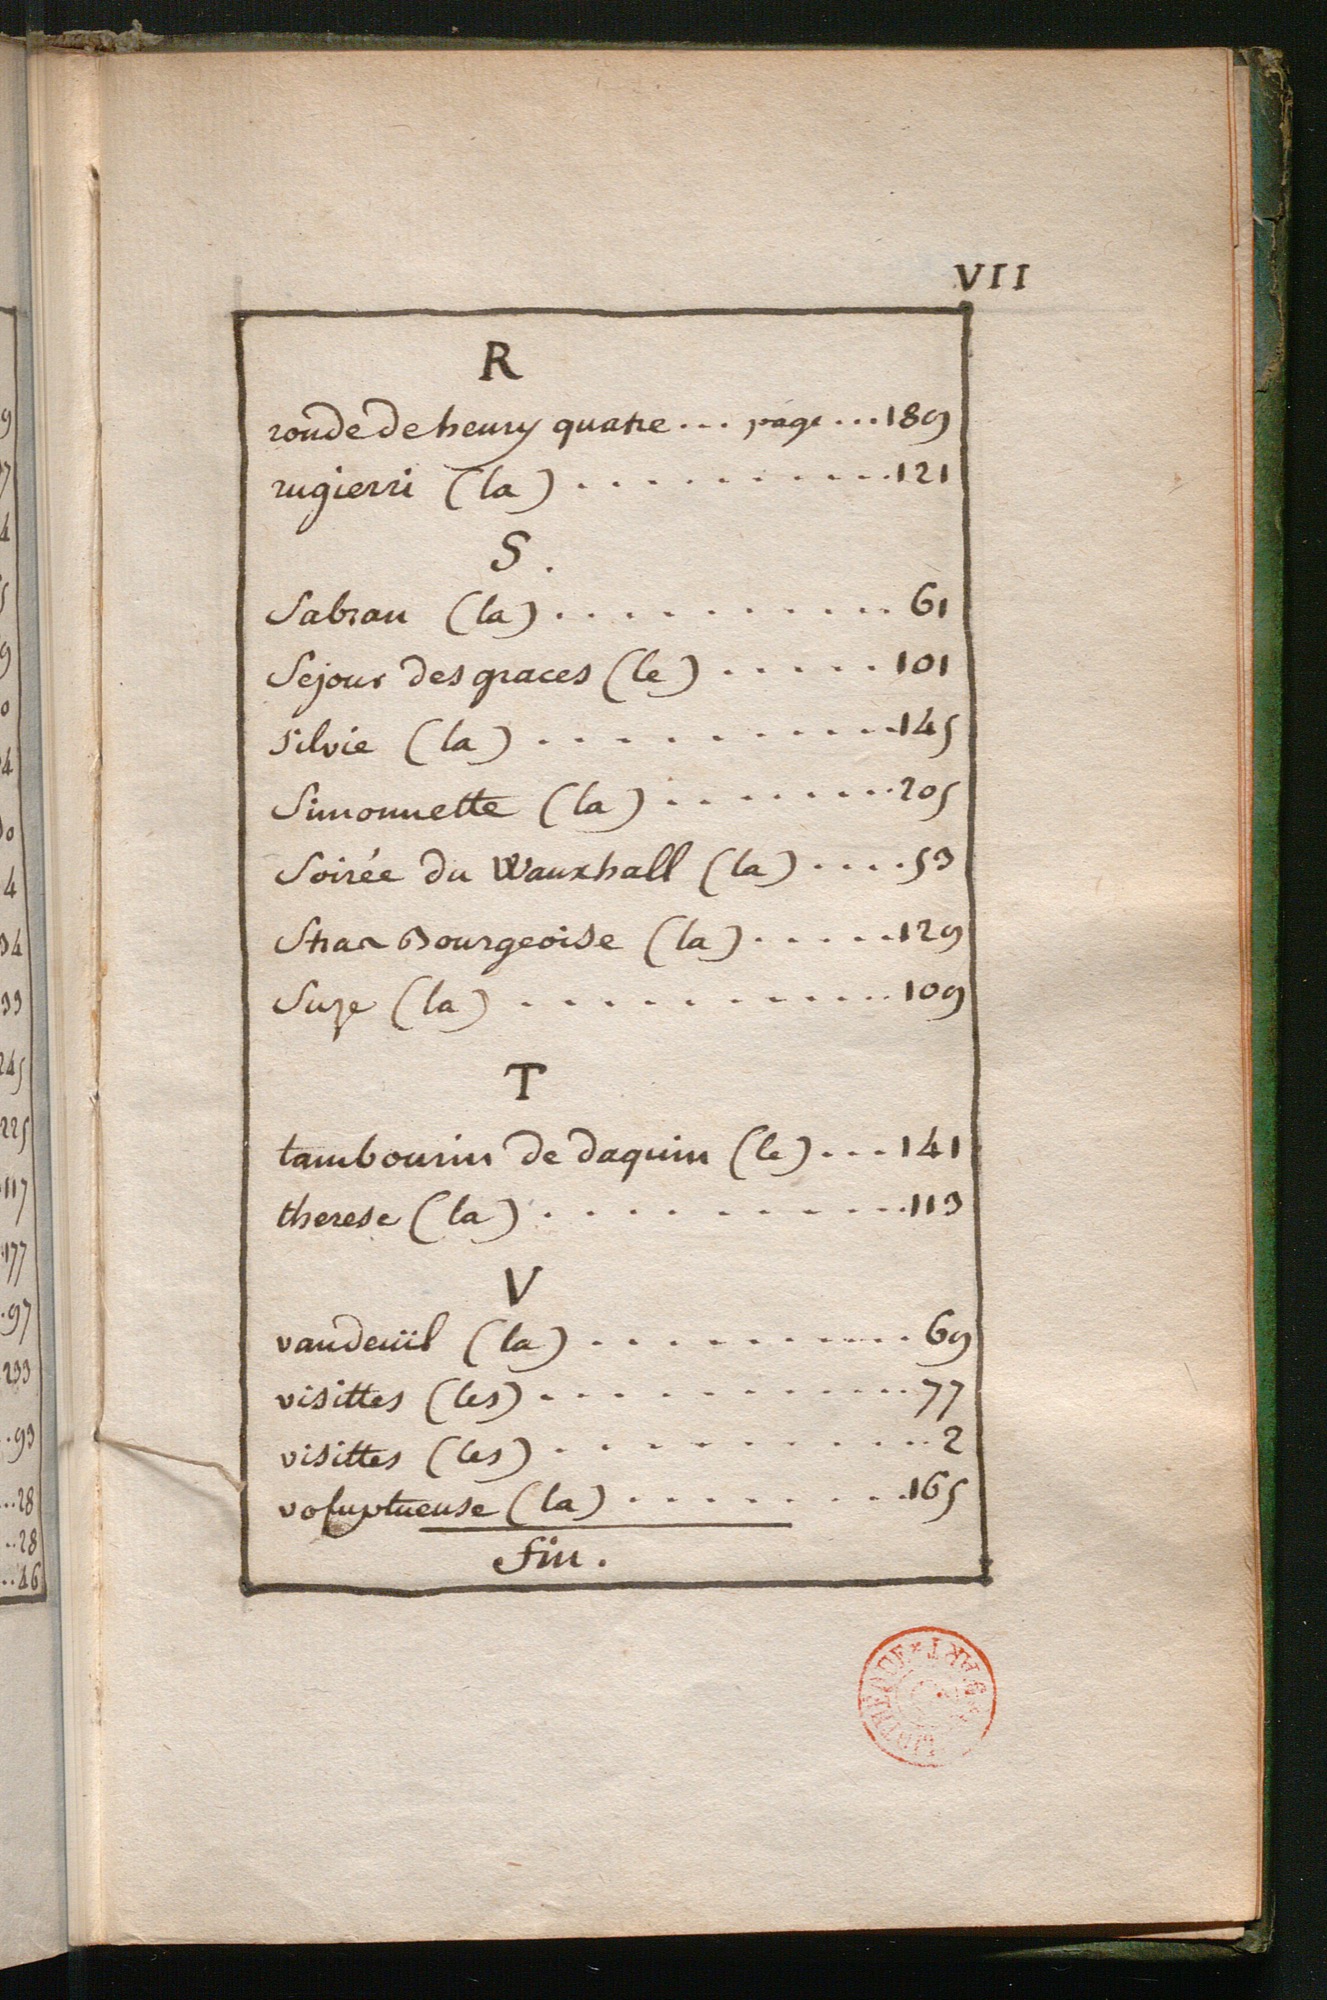 VII
R
ronde de henry quatre... page...189
rugierri (la)..........121
S.
Sabran (la)..........61
Sejour des graces (le).....101
Silvie (la)..........145
Simonnette (la)........205
Soirée du Wauxhall (la)....53
Stras Bourgeoise (la).....129
Suze (la)...........109
T
tambourin de daquin (le)...141
therese (la)..........113
V
vaudeüil (la)..........69
visittes (les)...........77
visittes (les)...........2
voluptueuse (la)........165
fin.
9
7
4
5
9
0
4
0
4
34
33
245
225
117
177
.97
233
..93
...28
..28
..46